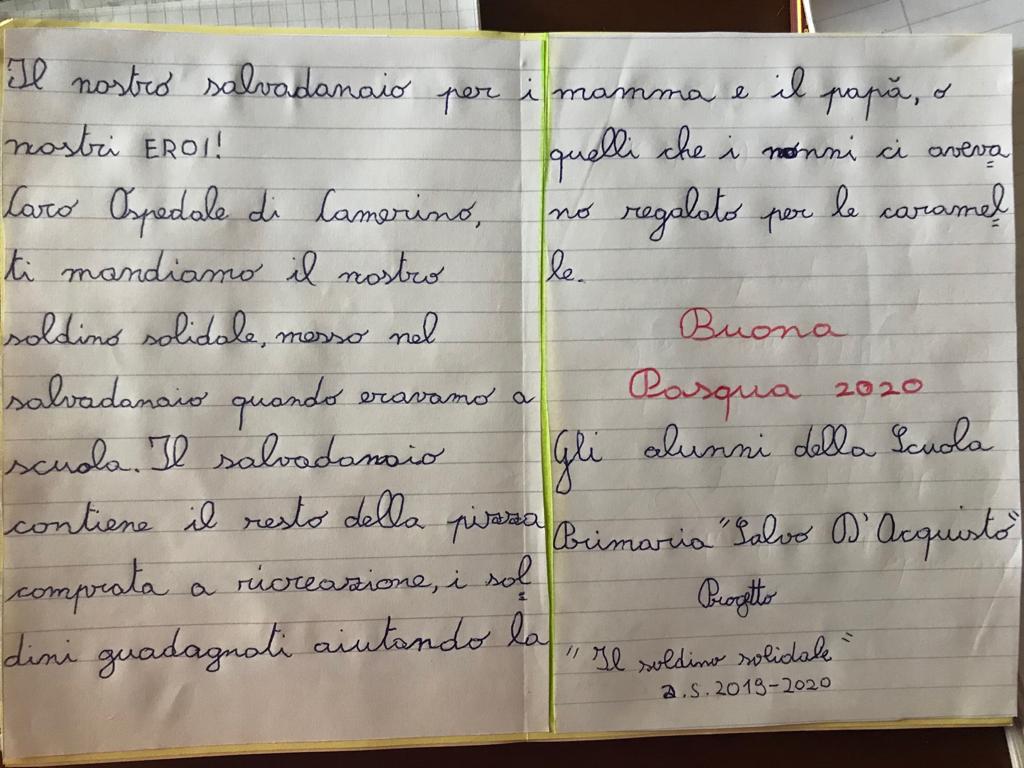 Il nostro salvadanaio per i
nostri EROI!
Caro Ospedale di Camerino,
ti mandiamo il nostro
soldino solidale, messo nel
salvadanaio quando eravamo a
scuola. Il salvadanaio
contiene il resto della pizza
comprata a ricreazione, i sol
dini guadagnati aiutando la
mamma e il papă, o
quelli che i nonni ci aveva
no regalato per le caramel
le.
Buona
Pasqua 2020
Gli alunni della Scuola
Primaria "Salvo D'Acquisto"
Progetto
"Il soldino solidale"
a.s. 2019-2020